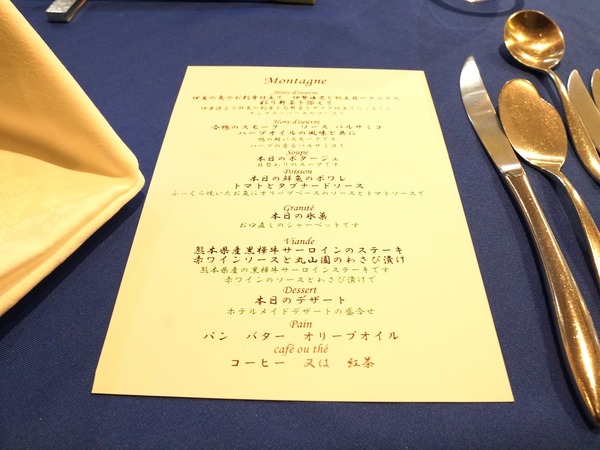 Montagne
Hors-d'oeuvre
彩り野菜を添えて
Hors-d'oeuvre
合鴨のスモーク ソース バルサミコ
ハーブオイルの風味と共に
鴨の軽いスモークです
ハーブの香るバルサミコで
Soupe
本日のポタージュ
日替わりのスープです
Poisson
本日の鮮魚のポワレ
トマトとタプナードソース
ふっくら焼いたお魚にオリーブベースのソースとトマトソースで
Granité
本日の氷菓
お口直しのシャーベットです
Viande
熊本県産黒樺牛サーロインのステーキ
赤ワインソースと丸山園のわさび漬け
熊本県産の黒樺牛サーロインステーキです
赤ワインのソースとわさび漬けで
Dessert
本日のデザート
ホテルメイドデザートの盛合せ
Pain
パン バター オリーブオイル
café ou thé
コーヒー 又は 紅茶